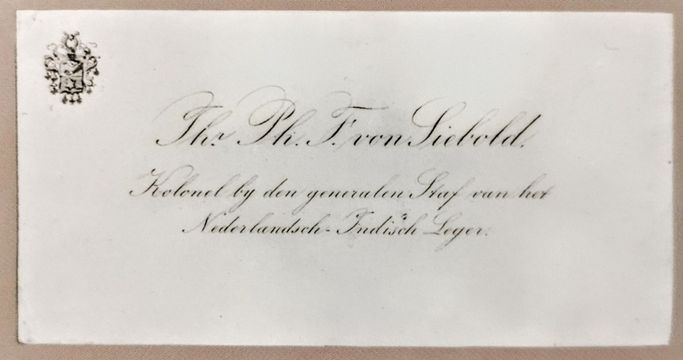 Jhr. Ph. F. von Siebold.
Kolonel by den generalen Staf van het
Nederlandsch-Indisch Leger.